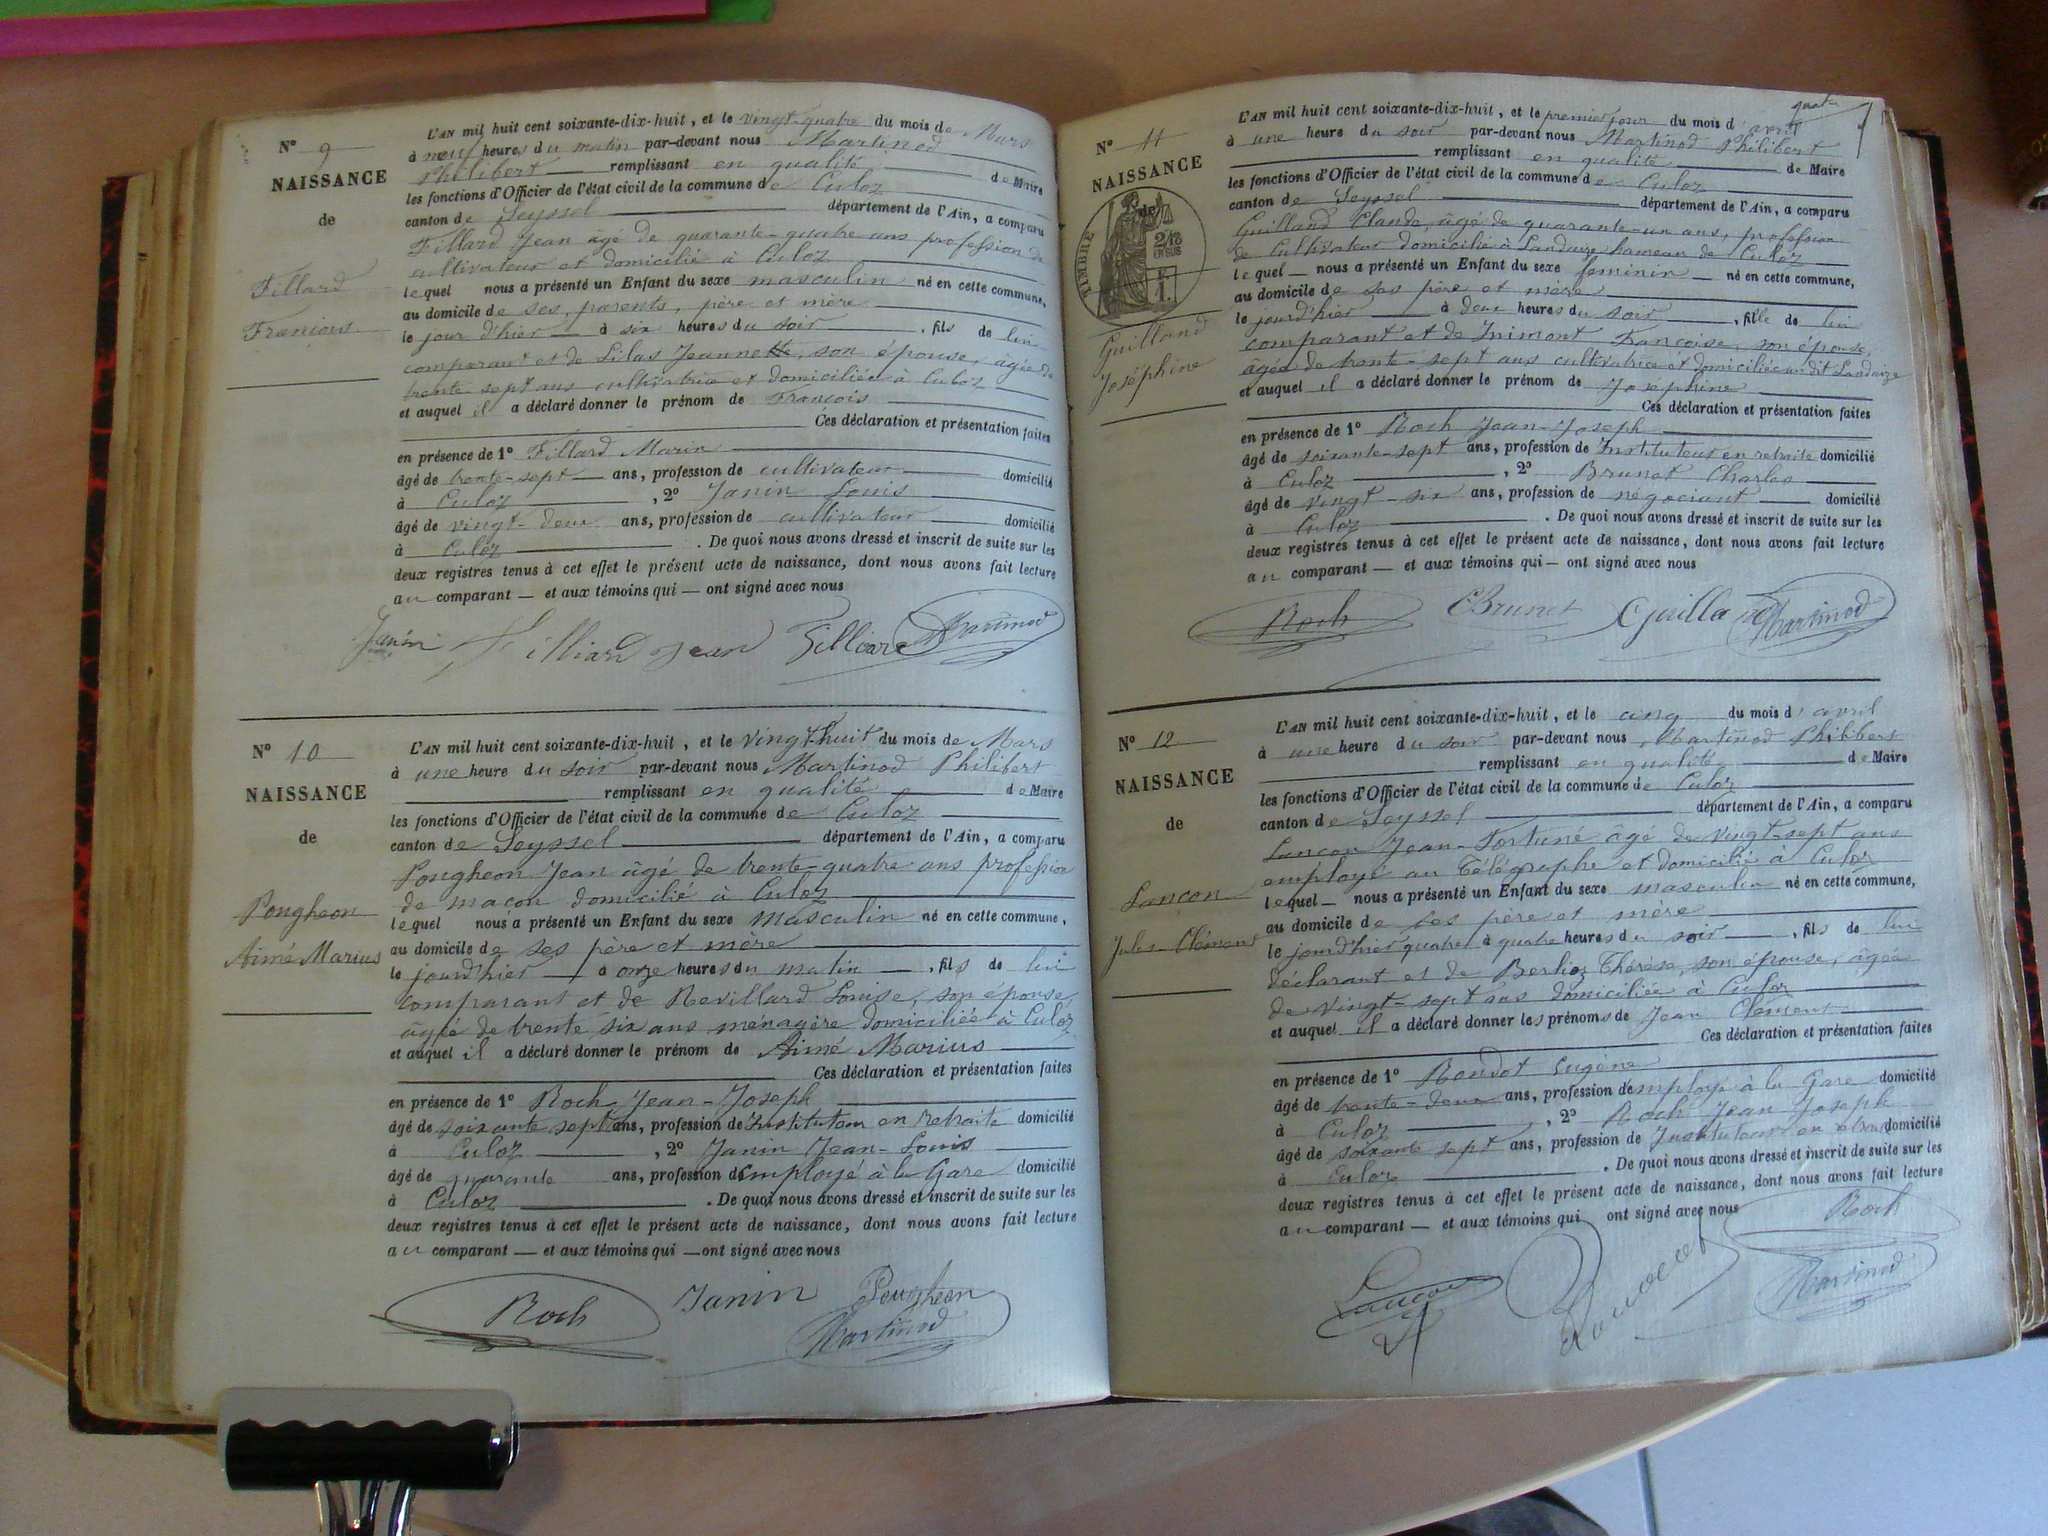 N° 9
NAISSANCE
de
Fillard
François
L'AN mil huit cent soixante-dix-huit, et le vingt-quatre du mois de Mars
à neuf heures du matin par-devant nous Martinod
Philibert remplissant en qualité de Maire
les fonctions d'Officier de l'état civil de la commune de Culoz
canton de Seyssel département de l'Ain, a comparu
Fillard Jean âgé de quarante-quatre ans profession de
cultivateur et domicilié à Culoz
lequel nous a présenté un Enfant du sexe masculin né en cette commune,
au domicile de ses parents, père et mère
le jour d'hier à six heures du soir, fils de lui
comparant et de Lilas Jeannette, son épouse, âgée de
trente-sept ans cultivatrice et domiciliée à Culoz
et auquel il a déclaré donner le prénom de François
Ces déclaration et présentation faites
en présence de 1° Fillard Marin
âgé de trente-sept ans, profession de cultivateur domicilié
à Culoz, 2° Janin Louis
âgé de vingt-deux ans, profession de cultivateur domicilié
à Culoz. De quoi nous avons dressé et inscrit de suite sur les
deux registres tenus à cet effet le présent acte de naissance, dont nous avons fait lecture
au comparant — et aux témoins qui — ont signé avec nous
Janin Filliard Jean Filliard Martinod
N° 10
NAISSANCE
de
Pougheon
Aimé Marius
L'AN mil huit cent soixante-dix-huit, et le vingt-huit du mois de Mars
à une heure du soir par-devant nous Martinod Philibert
remplissant en qualité de Maire
les fonctions d'Officier de l'état civil de la commune de Culoz
canton de Seyssel département de l'Ain, a comparu
Pougheon Jean âgé de trente-quatre ans profession
de maçon domicilié à Culoz
lequel nous a présenté un Enfant du sexe masculin né en cette commune,
au domicile de ses père et mère
le jourd'hier à onze heures du matin, fils de lui
comparant et de Revillard Louise, son épouse,
âgée de trente six ans ménagère domiciliée à Culoz
et auquel il a déclaré donner le prénom de Aimé Marius
Ces déclaration et présentation faites
en présence de 1° Roch Jean-Joseph
âgé de soixante sept ans, profession de Instituteur en retraite domicilié
à Culoz, 2° Janin Jean-Louis
âgé de quarante ans, profession de employé à la Gare domicilié
à Culoz. De quoi nous avons dressé et inscrit de suite sur les
deux registres tenus à cet effet le présent acte de naissance, dont nous avons fait lecture
au comparant — et aux témoins qui — ont signé avec nous
Roch Janin Pougheon
Martinod
quatre
N° 11
NAISSANCE
de
TIMBRE
2/10
EN SUS
F.
1.
Guilland
Joséphine
L'AN mil huit cent soixante-dix-huit, et le premier jour du mois d'avril
à une heure du soir par-devant nous Martinod Philibert
remplissant en qualité de Maire
les fonctions d'Officier de l'état civil de la commune de Culoz
canton de Seyssel département de l'Ain, a comparu
Guilland Claude, âgé de quarante-un ans, profession
de Cultivateur domicilié à Landaize hameau de Culoz
lequel — nous a présenté un Enfant du sexe féminin — né en cette commune,
au domicile de ses père et mère
le jourd'hier à deux heures du soir, fille de lui
comparant et de Inimont Françoise, son épouse,
âgée de trente-sept ans cultivatrice et domiciliée au dit Landaize
et auquel il a déclaré donner le prénom de Joséphine
Ces déclaration et présentation faites
en présence de 1° Roch Jean-Joseph
âgé de soixante-sept ans, profession de Instituteur en retraite domicilié
à Culoz, 2° Brunet Charles
âgé de vingt-six ans, profession de négociant domicilié
à Culoz. De quoi nous avons dressé et inscrit de suite sur les
deux registres tenus à cet effet le présent acte de naissance, dont nous avons fait lecture
au comparant — et aux témoins qui — ont signé avec nous
Roch CBrunet Cguilland Martinod
N° 12
NAISSANCE
de
Lançon
Jules-Clément
L'AN mil huit cent soixante-dix-huit, et le cinq du mois d'avril
à une heure du soir par-devant nous Martinod Philibert
remplissant en qualité de Maire
les fonctions d'Officier de l'état civil de la commune de Culoz
canton de Seyssel département de l'Ain, a comparu
Lançon Jean-Fortuné âgé de vingt-sept ans
employé au Télégraphe et domicilié à Culoz
lequel — nous a présenté un Enfant du sexe masculin né en cette commune,
au domicile de ses père et mère
le jourd'hier quatre à quatre heures du soir, fils de lui
déclarant et de Berlioz Thérèse, son épouse, âgée
de vingt-sept ans domiciliée à Culoz
et auquel il a déclaré donner les prénoms de Jean Clément
Ces déclaration et présentation faites
en présence de 1° Rondot Eugène
âgé de trente-deux ans, profession d'employé à la Gare domicilié
à Culoz, 2° Roch Jean Joseph
âgé de soixante sept ans, profession de Instituteur en retraite domicilié
à Culoz. De quoi nous avons dressé et inscrit de suite sur les
deux registres tenus à cet effet le présent acte de naissance, dont nous avons fait lecture
au comparant — et aux témoins qui ont signé avec nous
Roch
Lançon Martinod